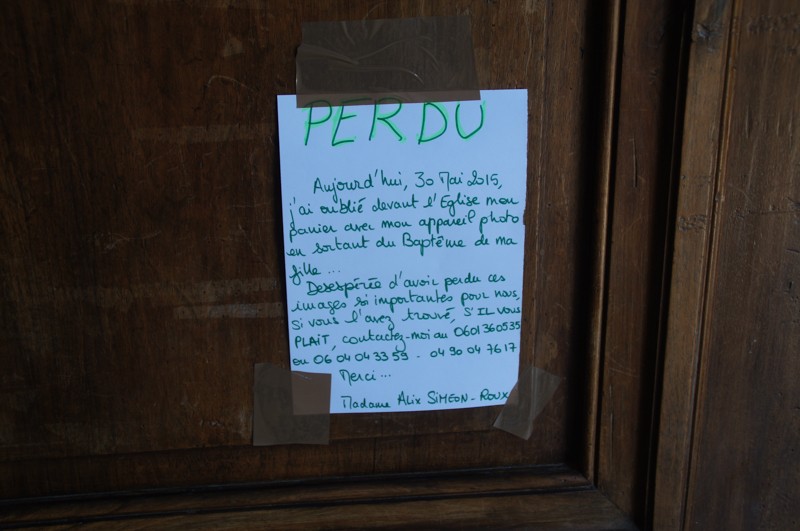 PERDU
Aujourd'hui, 30 Mai 2015,
j'ai oublié devant l'Eglise mon
panier avec mon appareil photo
en sortant du Baptême de ma
fille ...
Desespérée d'avoir perdu ces
images si importantes pour nous,
si vous l'avez trouvé, S'IL VOUS
PLAIT, contactez-moi au 0601360535
ou 06 04 04 33 59 - 04 90 04 76 17
Merci ...
Madame Alix SIMEON-ROUX